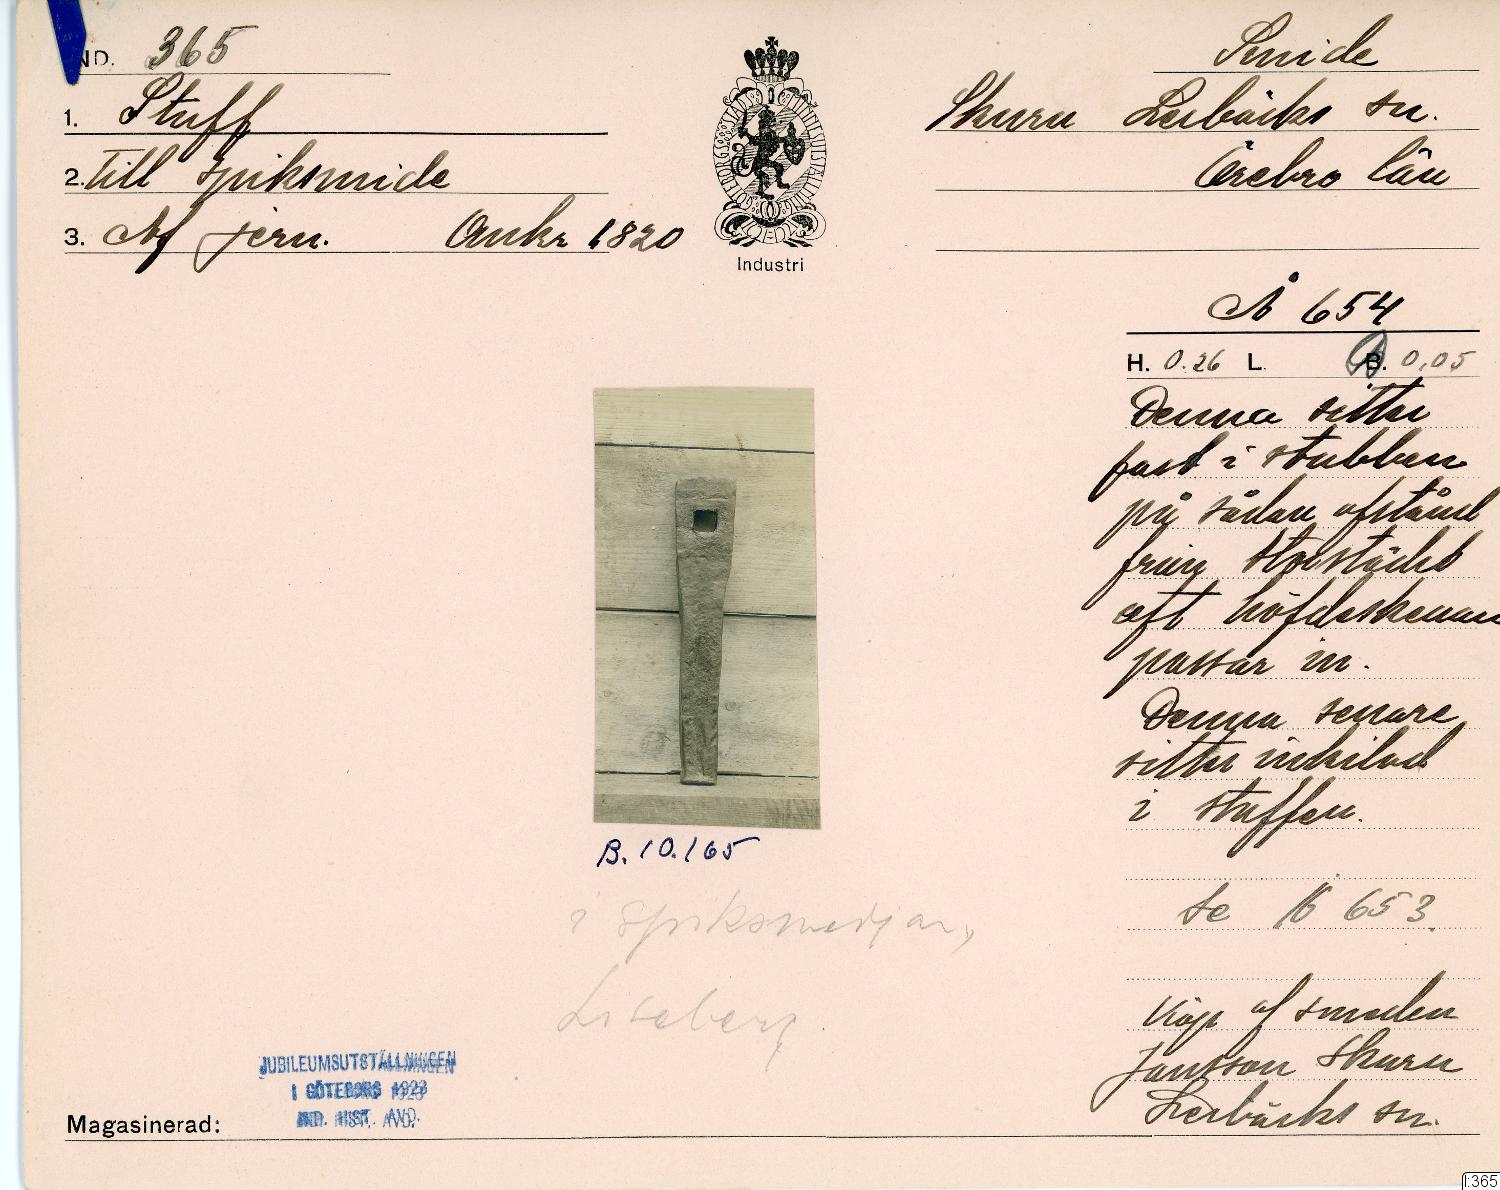 IND. 365
Smide
1. Stuff
Skuru Lerbäcks sn.
2. till spiksmide
Örebro län
3. Af jern. Omkr 1820
GÖTEBORGS STADT
Industri
№ 654
H. 0.26 L. B. 0,05
Denna sitter
fast i stubben
på sådan afstånd
från
att
passar in.
Denna senare
sitter inkilad
i stuffen.
B. 10.165
i spiksmedjan,
se № 653.
Liseberg.
Köp af smeden
Jansson Skuru
Lerbäcks sn.
JUBILEUMSUTSTÄLLNINGEN
I GÖTEBORG 1923
IND. HIST. AVD.
Magasinerad:
I:365